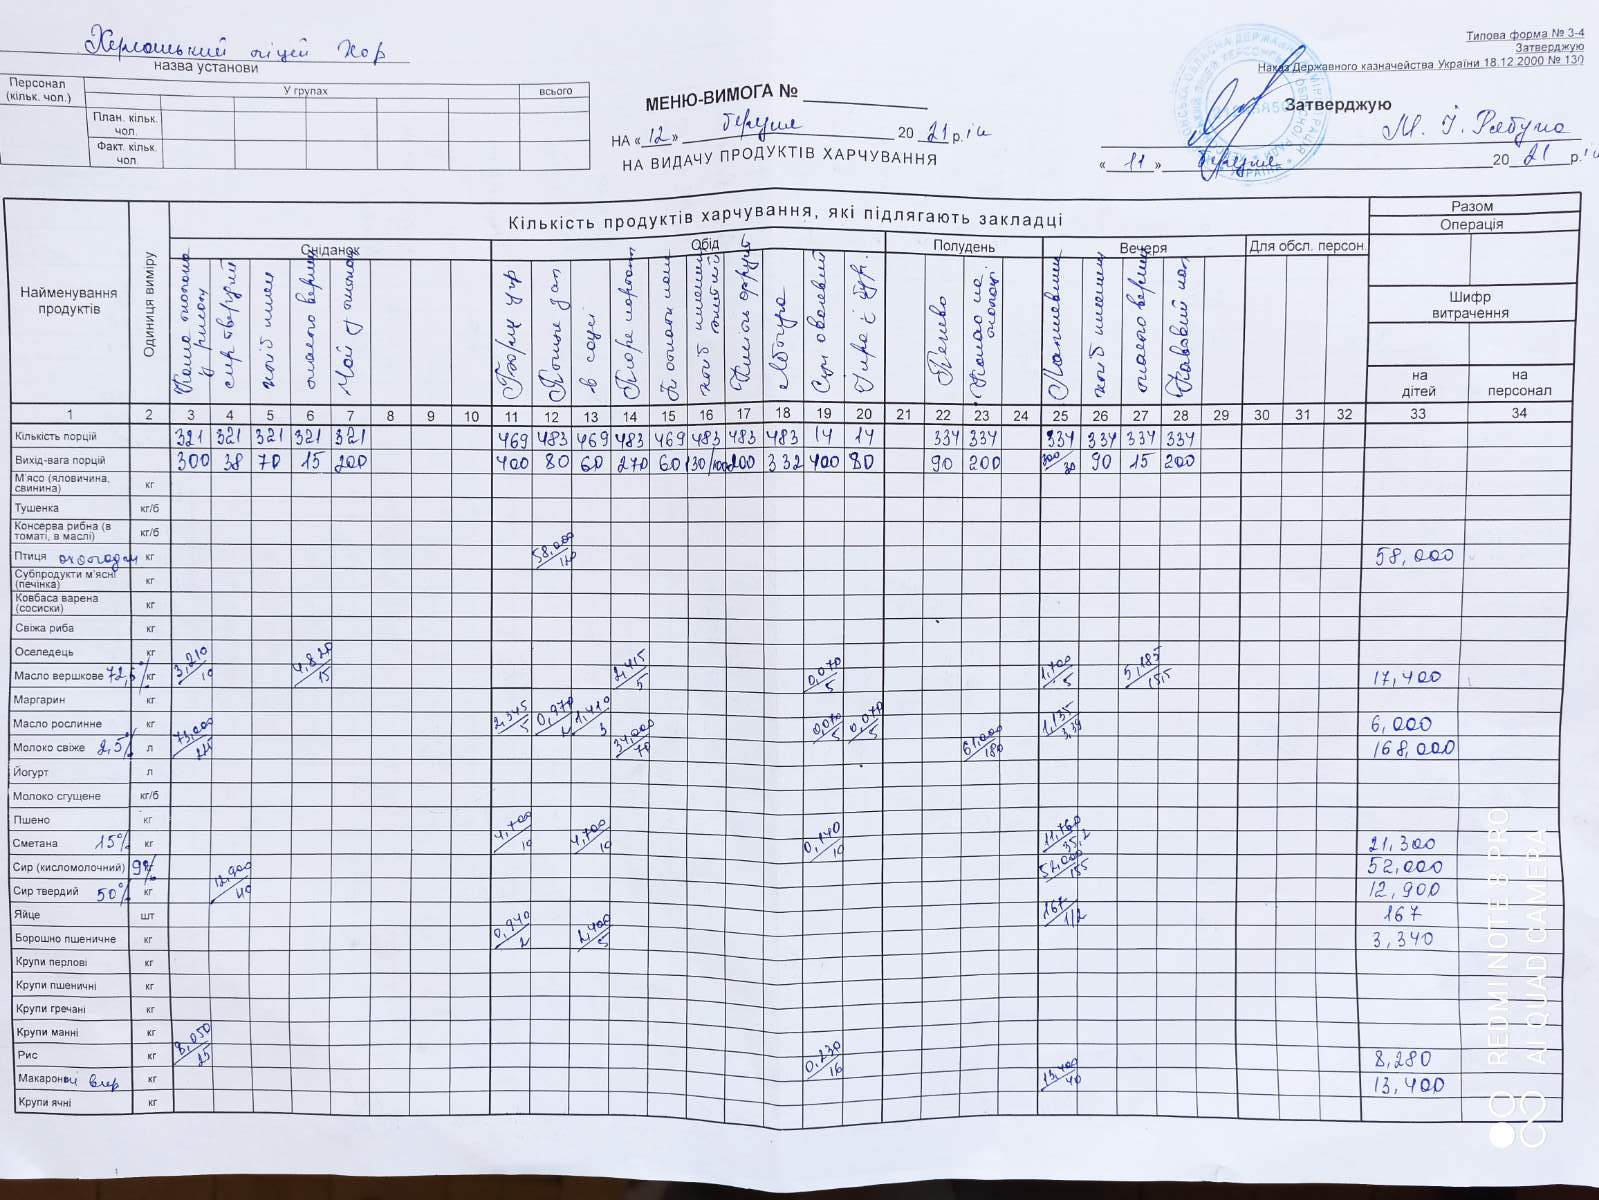 Типова форма № З-4
Затверджую
Наказ Державного казначейства України 18.12.2000 № 130
Херсонський ліцей Хор
назва установи
Персонал (кільк. чол.) У групах всього
План. кільк. чол.
Факт. кільк. чол.
МЕНЮ-ВИМОГА №
НА « 12 » березня 20 21 р.
НА ВИДАЧУ ПРОДУКТІВ ХАРЧУВАННЯ
Затверджую
М. І. Рябуха
« 11 » березня 20 21 р.
Найменування продуктів
Одиниця виміру
Кількість продуктів харчування, які підлягають закладці
Разом
Операція
Сніданок Обід Полудень Вечеря Для обсл. персон.
Шифр витрачення
на дітей на персонал
сир твердий
Чай
Борщ укр
в соусі
Пюре
Яблука
Печиво
Какао на молоці
хліб
1 2 3 4 5 6 7 8 9 10 11 12 13 14 15 16 17 18 19 20 21 22 23 24 25 26 27 28 29 30 31 32 33 34
Кількість порцій 321 321 321 321 321 469 483 469 483 469 483 483 483 14 14 334 334 334 334 334 334
Вихід-вага порцій 300 38 70 15 200 400 80 60 270 60 130/100 200 332 400 80 90 200 300/30 90 15 200
М'ясо (яловичина, свинина) кг
Тушенка кг/б
Консерва рибна (в томаті, в маслі) кг/б
Птиця охолоджен кг 58,000/120 58,000
Субпродукти м'ясні (печінка) кг
Ковбаса варена (сосиски) кг
Свіжа риба кг
Оселедець кг
Масло вершкове 72,5% кг 3,210/10 4,820/15 2,415/5 0,070/5 1,700/5 5,185/15,5 17,400
Маргарин кг
Масло рослинне кг 2,345/5 0,970/2 1,410/3 0,070/5 0,070/5 1,135/3,39 6,000
Молоко свіже 2,5% л 73,000 34,000/70 61,000/180 168,000
Йогурт л
Молоко сгущене кг/б
Пшено кг
Сметана 15% кг 4,700/10 4,700/10 0,140/10 11,760/35,2 21,300
Сир (кисломолочний) 9% 52,000/155 52,000
Сир твердий 50% кг 12,900/40 12,900
Яйце шт 167/1/2 167
Борошно пшеничне кг 0,940/2 2,400/5 3,340
Крупи перлові кг
Крупи пшеничні кг
Крупи гречані кг
Крупи манні кг
Рис кг 8,050/25 0,230/16 8,280
Макарони кг 13,400/40 13,400
Крупи ячні кг
REDMI NOTE 8 PRO
AI QUAD CAMERA